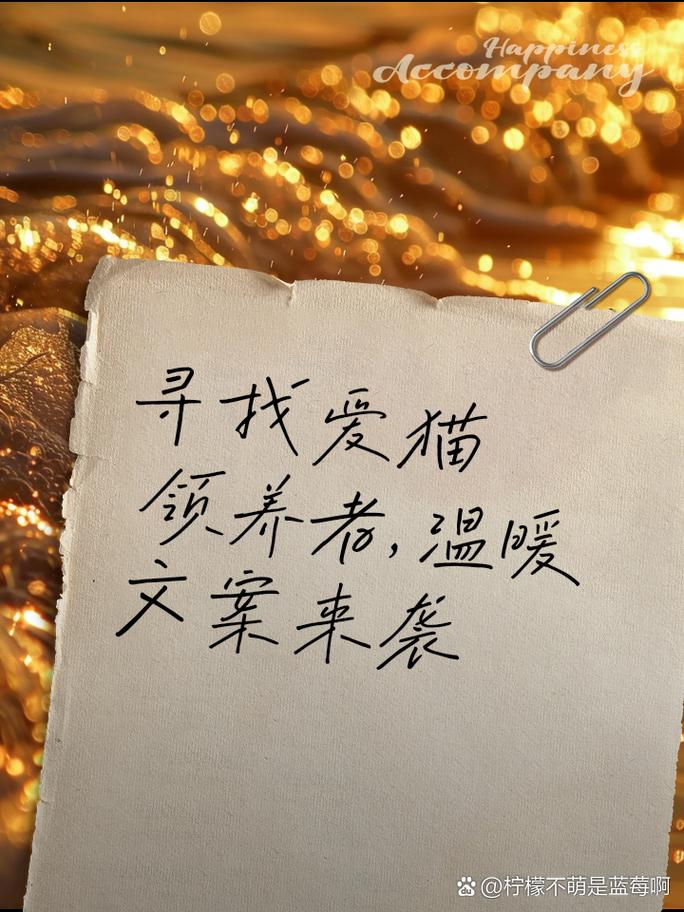 Happiness
Accompany
寻找爱猫
领养者,温暖
文案来袭
@柠檬不萌是蓝莓啊